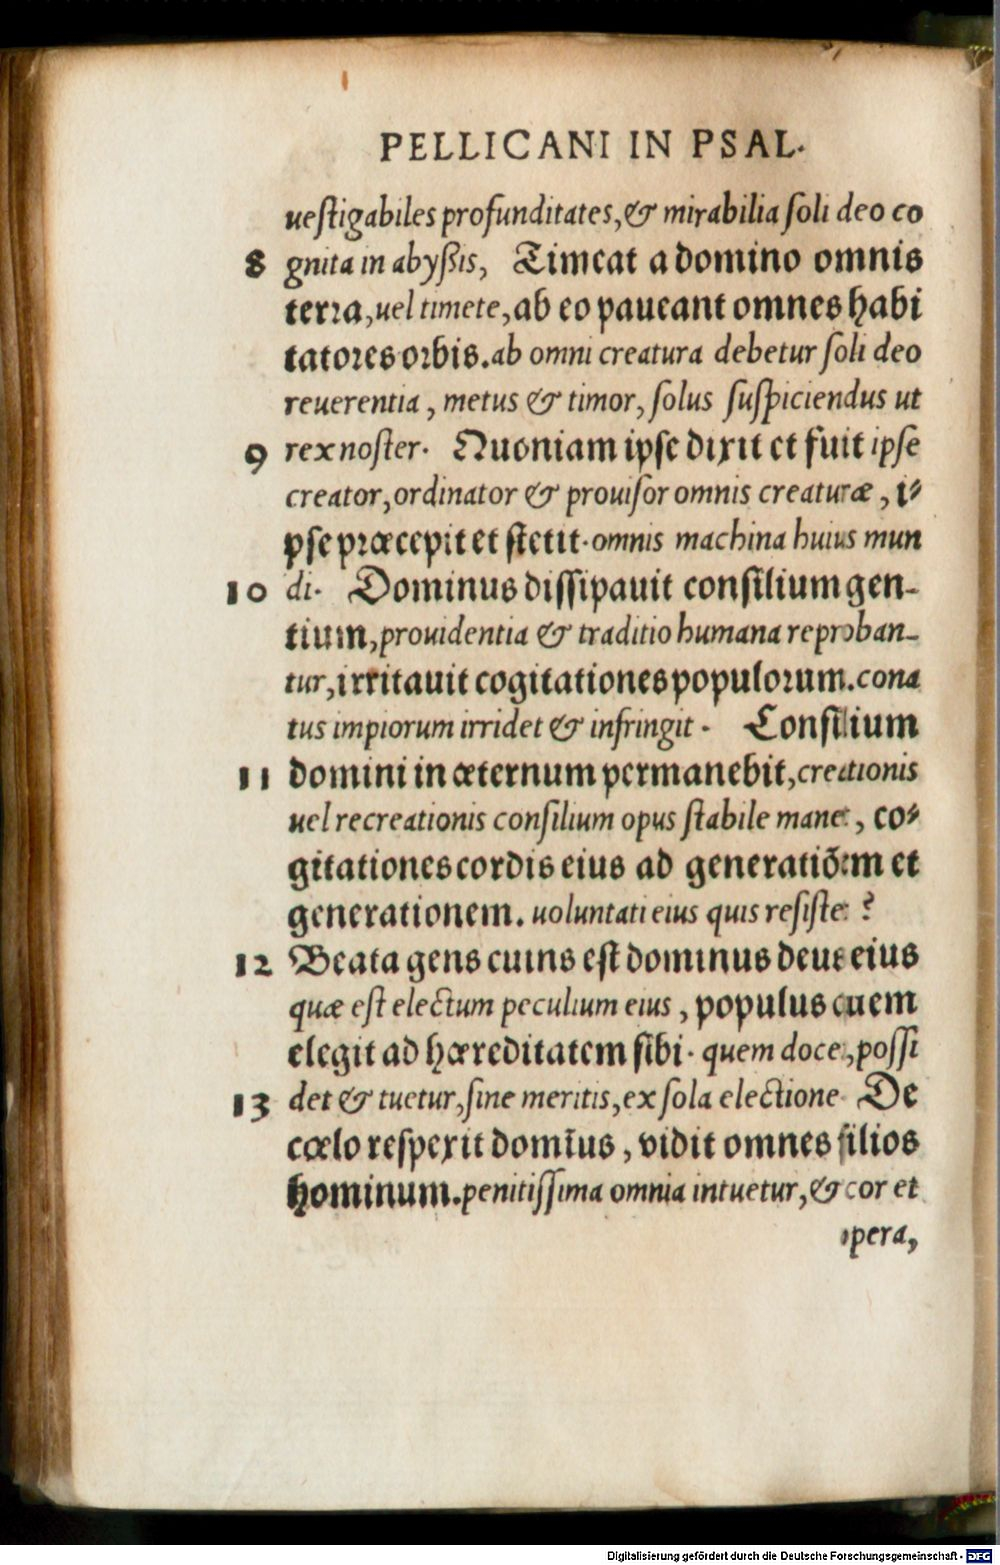 PELLICANI IN PSAL.
ueſtigabiles profunditates, & mirabilia ſoli deo co
8 gnita in abyſſis, Timeat a domino omnis
terra, uel timete, ab eo paueant omnes habi
tatores orbis. ab omni creatura debetur ſoli deo
reuerentia, metus & timor, ſolus ſuſpiciendus ut
9 rex noſter. Quoniam ipſe dixit et fuit ipſe
creator, ordinator & prouiſor omnis creaturæ, i⸗
pſe præcepit et ſtetit. omnis machina huius mun
10 di. Dominus diſſipauit conſilium gen-
tium, prouidentia & traditio humana reproban-
tur, irritauit cogitationes populorum. cona
tus impiorum irridet & infringit. Conſilium
11 domini in æternum permanebit, creationis
uel recreationis conſilium opus ſtabile manet, co⸗
gitationes cordis eius ad generationem et
generationem. uoluntati eius quis reſiſtet ?
12 Beata gens cuius eſt dominus deus eius
quæ eſt electum peculium eius, populus quem
elegit ad hæreditatem ſibi. quem docet, poſſi
13 det & tuetur, ſine meritis, ex ſola electione De
cœlo reſpexit domīus, vidit omnes filios
hominum. penitiſſima omnia intuetur, & cor et
opera,
Digitalisierung gefördert durch die Deutsche Forschungsgemeinschaft - DFG